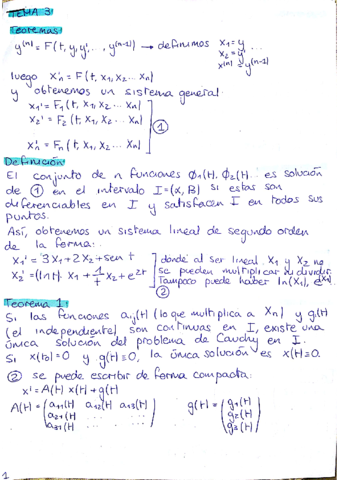 TEMA 3:
Teoremas:
y⁽ⁿ⁾ = F(t, y, y', ... y⁽ⁿ⁻¹⁾ → definimos x₁ = y
x₂ = y' ...
x⁽ⁿ⁾ = y⁽ⁿ⁻¹⁾
luego x'ₙ = F(t, x₁, x₂ ... xₙ)
y obtenemos un sistema general:
x₁' = F₁(t, x₁, x₂ ... xₙ)
x₂' = F₂(t, x₁, x₂ ... xₙ)
①
x'ₙ = Fₙ(t, x₁, x₂ ... xₙ)
Definición
El conjunto de n funciones Ø₁(t), Ø₂(t)... es solución
de ① en el intervalo I=(α, B) si estas son
diferenciables en I y satisfacen I en todos sus
puntos.
Así, obtenemos un sistema lineal de segundo orden
de la forma:
x₁' = 3x₁ + 2x₂ + sen t
x₂' = (ln t) · x₁ + 1/t x₂ + e²ᵗ
donde al ser lineal x₁ y x₂ no
se pueden multiplicar ni dividir.
Tampoco puede haber ln(x₁), eˣ¹
②
Teorema 1:
Si las funciones aᵢⱼ(t) (lo que multiplica a xₙ) y g(t)
(el independiente) son continuas en I, existe una
única solución del problema de Cauchy en I.
Si x(t₀) = 0 y g(t) = 0, la única solución es x(t) = 0.
② se puede escribir de forma compacta:
x' = A(t) x(t) + g(t)
A(t) = (a₁₁(t) a₁₂(t) a₁₃(t)
a₂₁(t) ... ...
a₃₁(t) ... ...)
g(t) = (g₁(t)
g₂(t)
g₃(t))
1